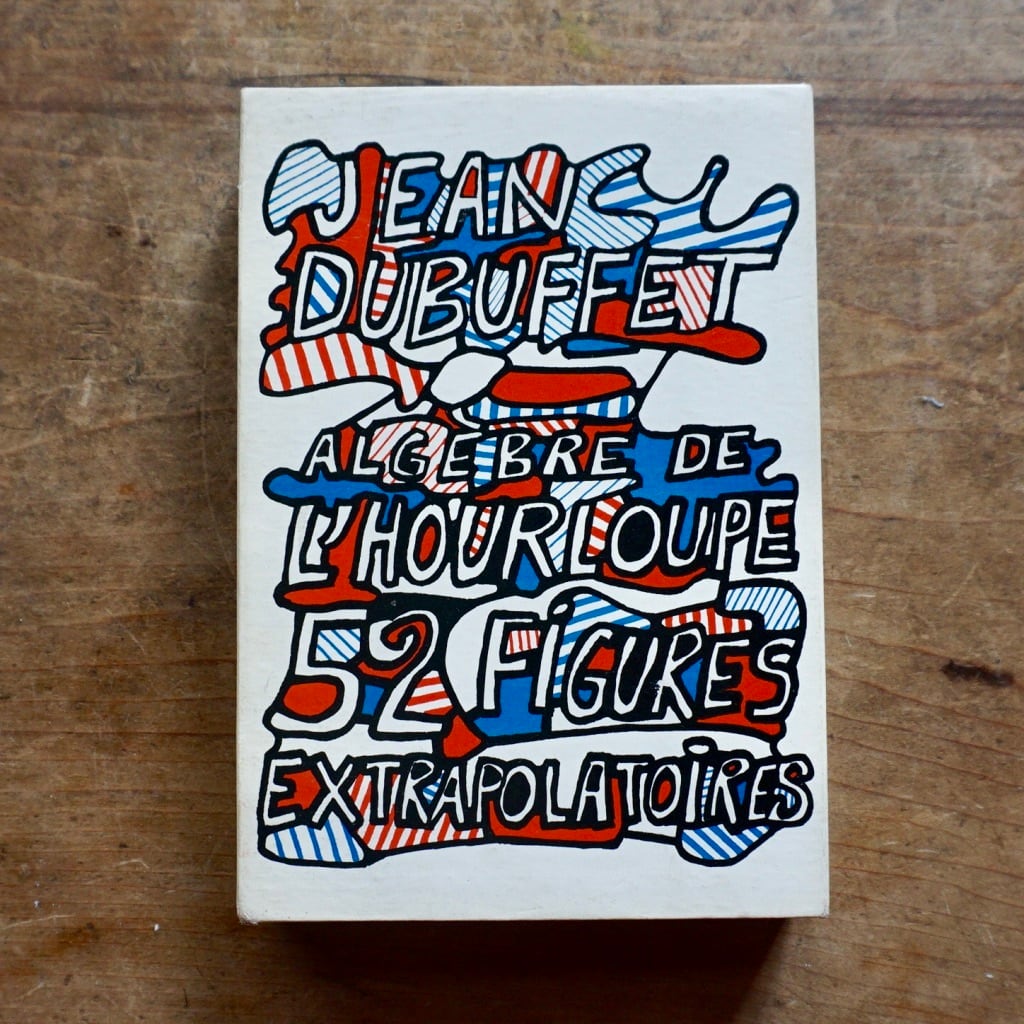 JEAN
DUBUFFET
ALGÈBRE DE
L'HOURLOUPE
52 FiGURES
EXTRAPOLATOiRES